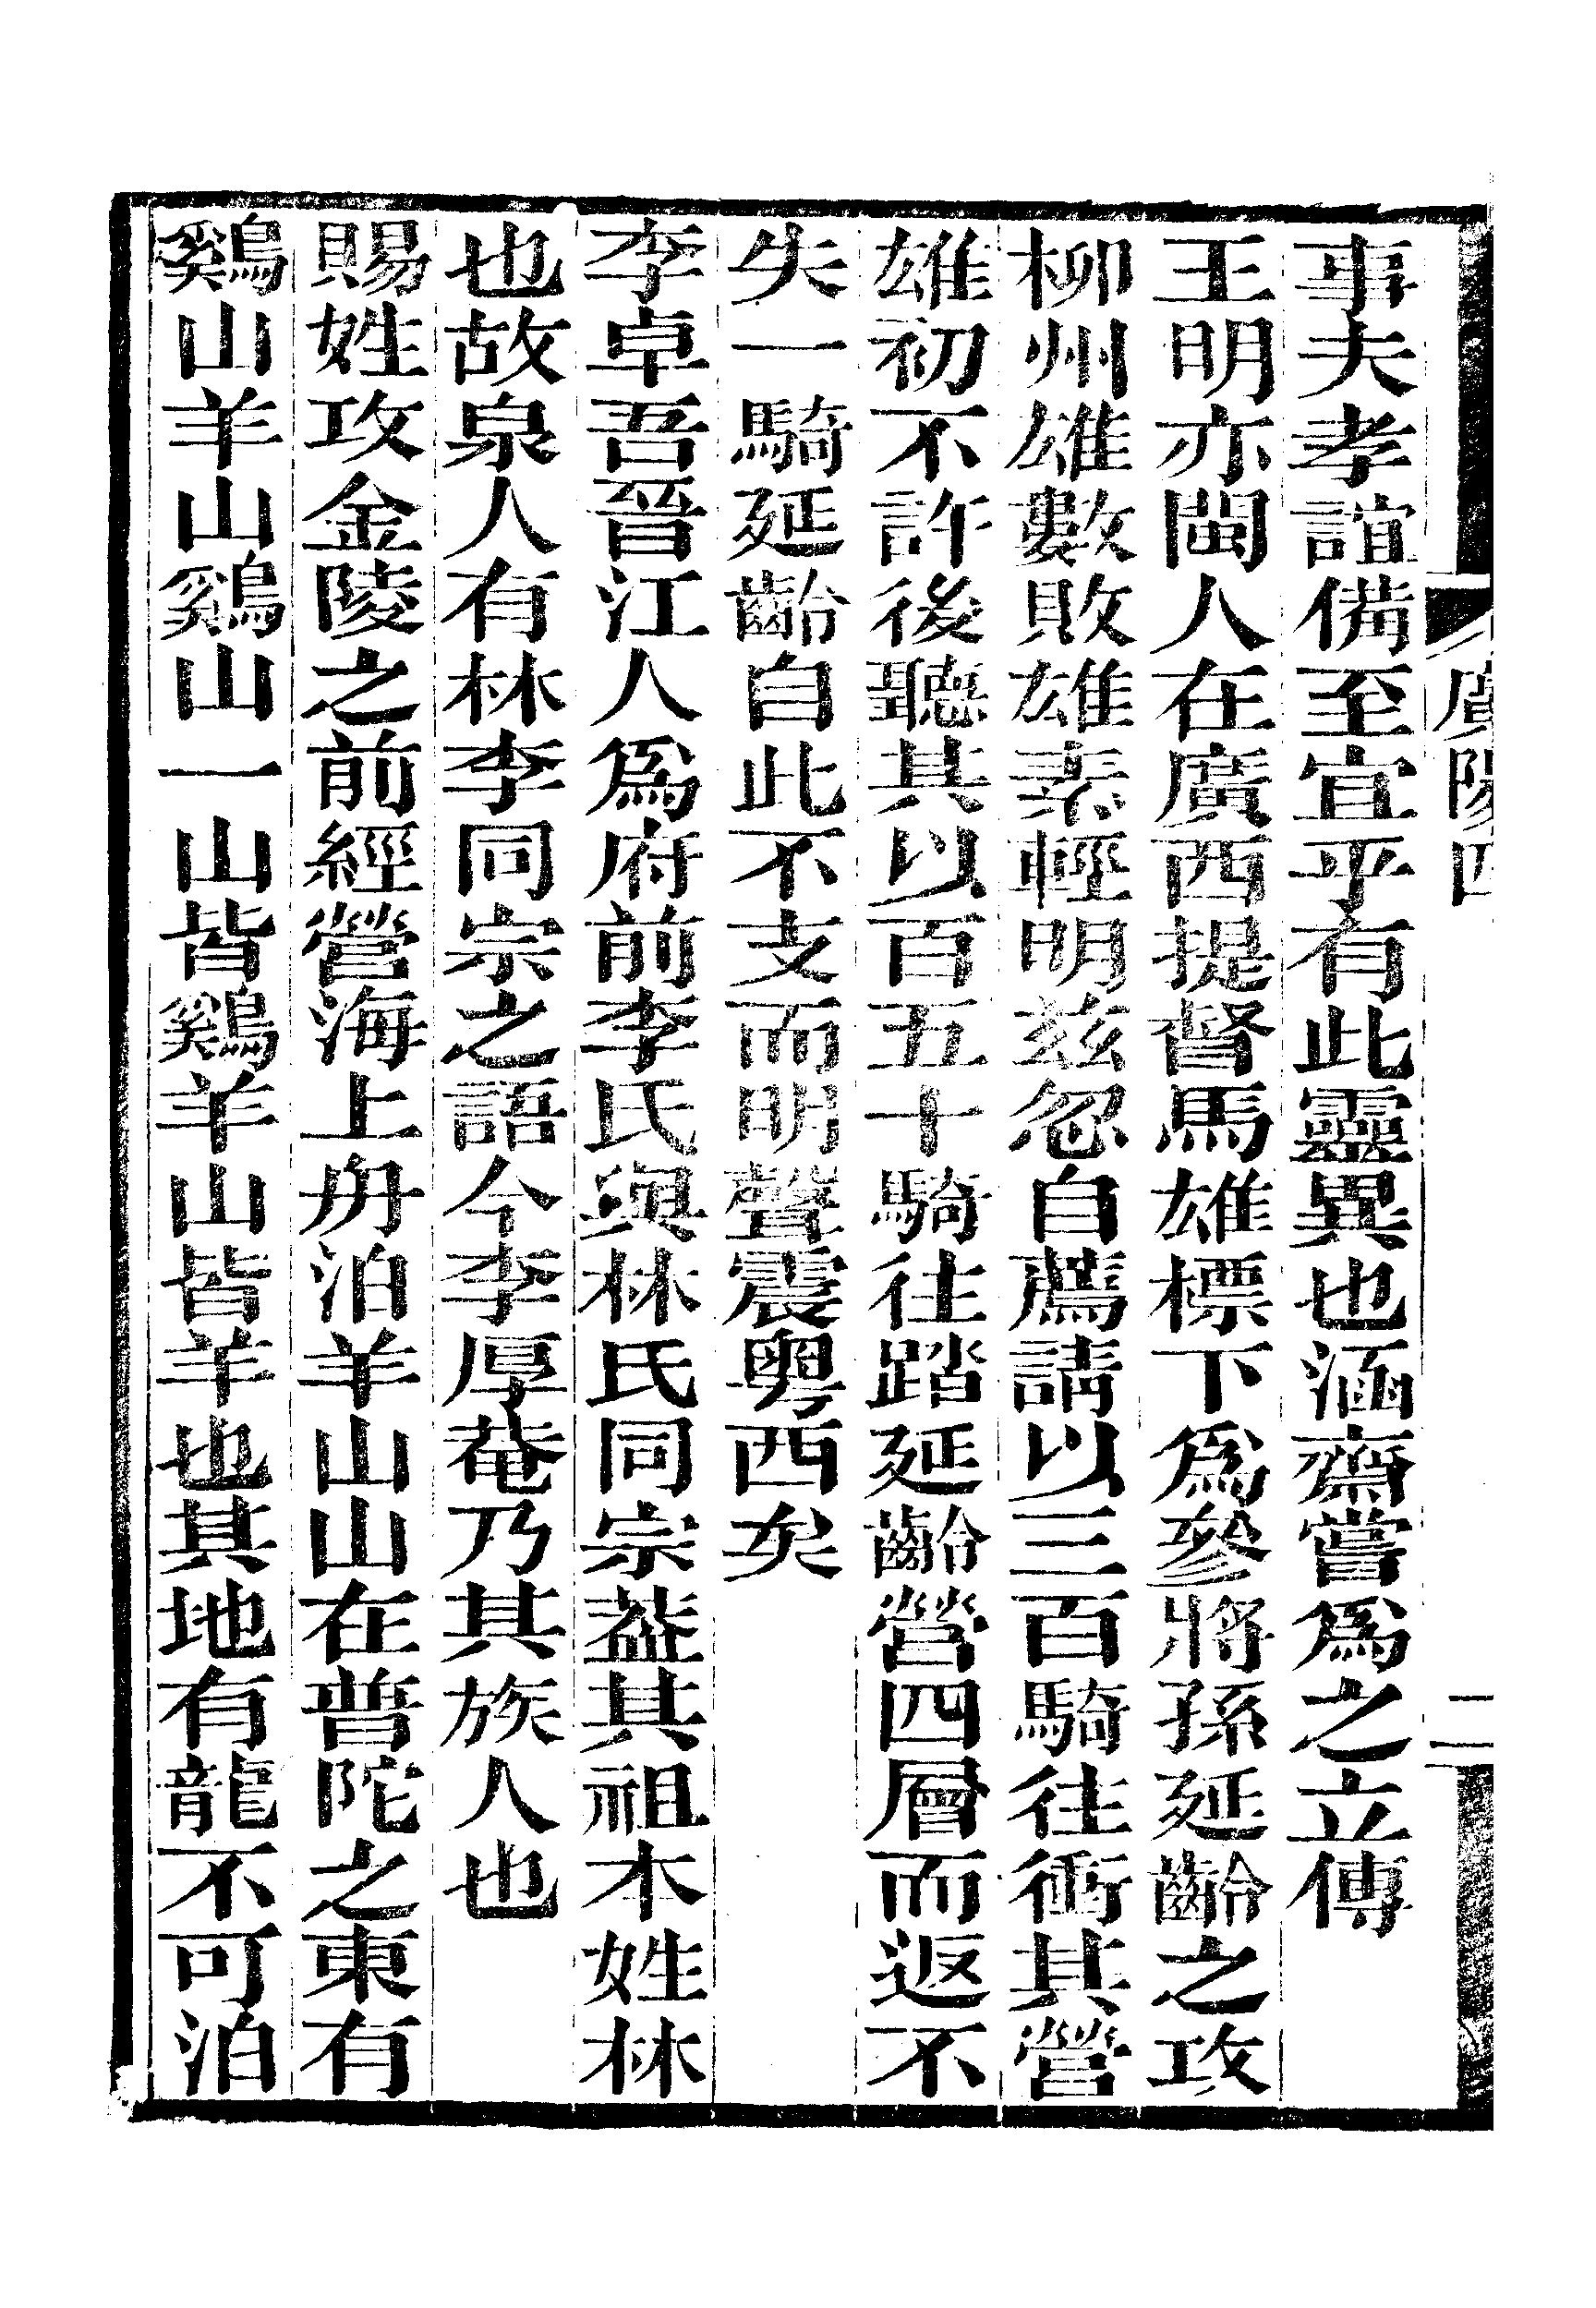 廣陽四
二
事夫孝誼備至宜乎有此靈異也涵齋嘗爲之立傳
王明亦閩人在廣西提督馬雄標下爲叅將孫延齡之攻
柳州雄數敗雄素輕明兹忽自薦請以三百騎往衝其營
雄初不許後聽其以百五十騎往踏延齡營四層而返不
失一騎延齡自此不支而明聲震粤西矣
李卓吾晉江人爲府前李氏與林氏同宗葢其祖本姓林
也故泉人有林李同宗之語今李厚菴乃其族人也
賜姓攻金陵之前經營海上舟泊羊山山在普陀之東有
鷄山羊山鷄山一山皆鷄羊山皆羊也其地有龍不可泊